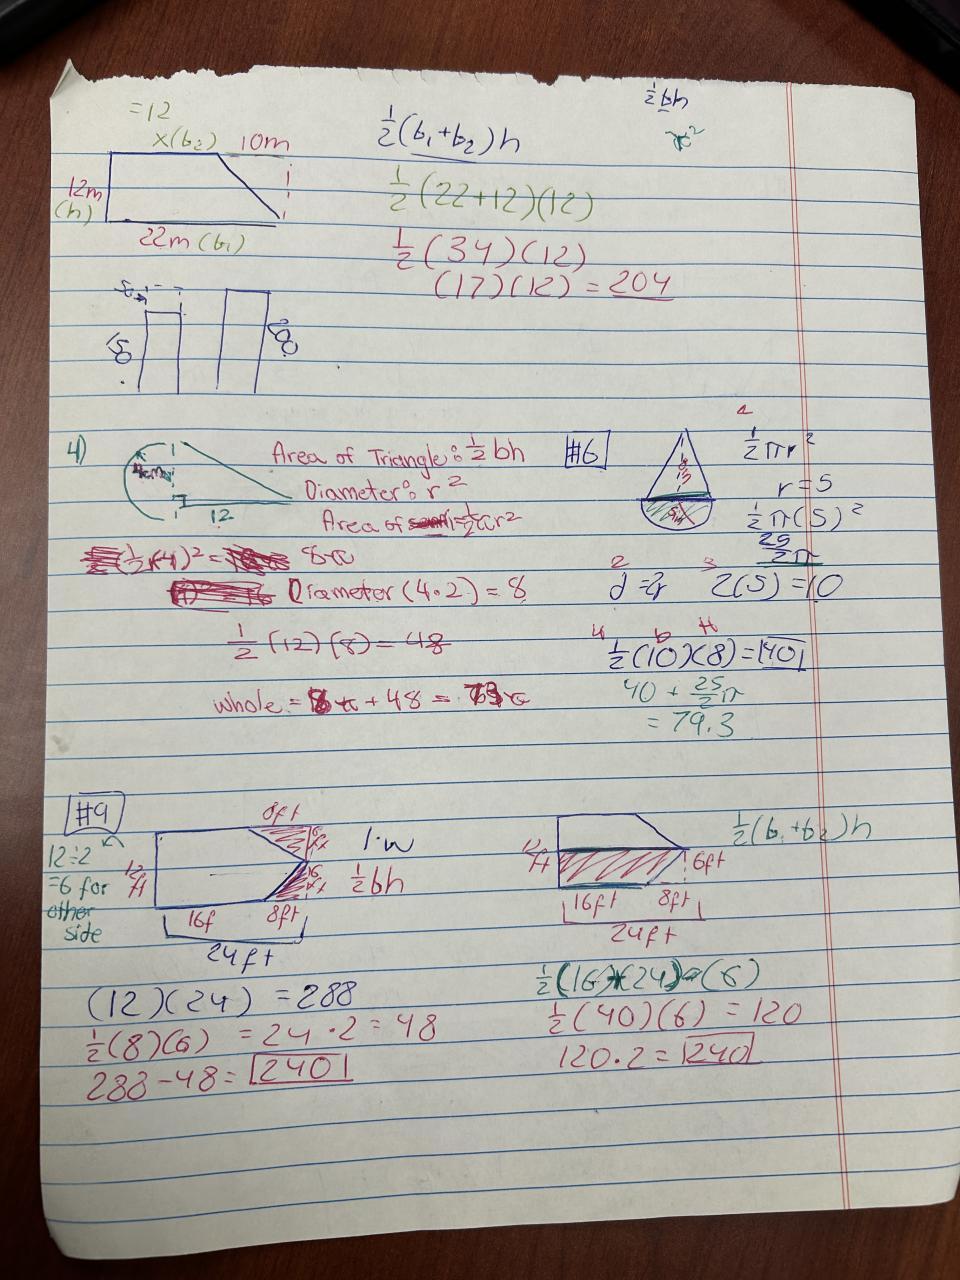 =12
x(b₂) 10m
12m
(h)
22m (b₁)
½(b₁+b₂)h
½(22+12)(12)
½(34)(12)
(17)(12) = 204
½bh
r²
4)
12
Area of Triangle: ½bh
Diameter: r²
Area of = ½πr²
(½)(4)² = 8π
Diameter (4·2) = 8
½(12)(8) = 48
whole = 8π + 48 =
#6
8
5
½πr²
r=5
½π(5)²
25/2π
d=2r 2(5)=10
½(10)(8)=40
40 + 25/2π
= 79.3
#9
12÷2
=6 for
other
side
12
ft
8ft
6
ft
6
ft
16f 8ft
24ft
l·w
½bh
(12)(24) = 288
½(8)(6) = 24·2 = 48
288-48= 240
½(b₁+b₂)h
12
ft
6ft
16ft 8ft
24ft
½(16+24)(6)
½(40)(6) = 120
120·2 = 240